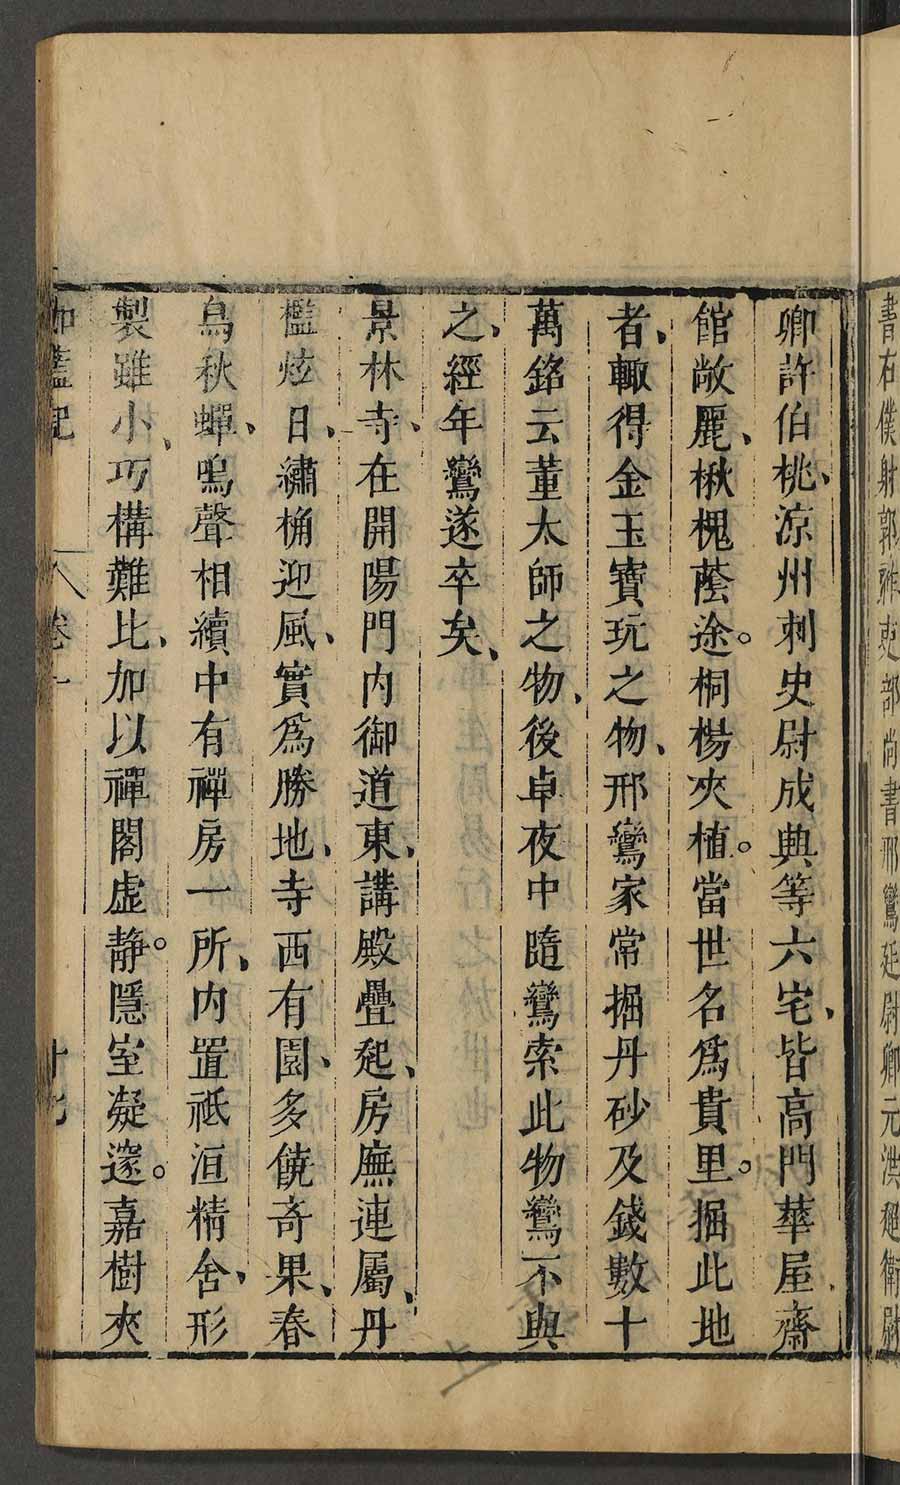 書右僕射郭祚吏部尚書邢鸞廷尉卿元洪超衛尉
卿許伯桃、涼州刺史尉成典等六宅、皆高門華屋齋
館敞麗、楸槐蔭途。桐楊夾植。當世名爲貴里。掘此地
者、輙得金玉寶玩之物、邢鸞家常掘丹砂及錢數十
萬銘云董太師之物、後卓夜中隨鸞索此物鸞不與
之、經年鸞遂卒矣、
景林寺、在開陽門内御道東、講殿疊起、房廡連屬、丹
檻炫日、繡桷迎風、實爲勝地、寺西有園、多饒奇果、春
鳥秋蟬、鳴聲相續中有禪房一所、内置祗洹精舍、形
製雖小、巧構難比、加以禪閣虚静。隱室凝邃。嘉樹夾
伽藍記 卷一 廿九